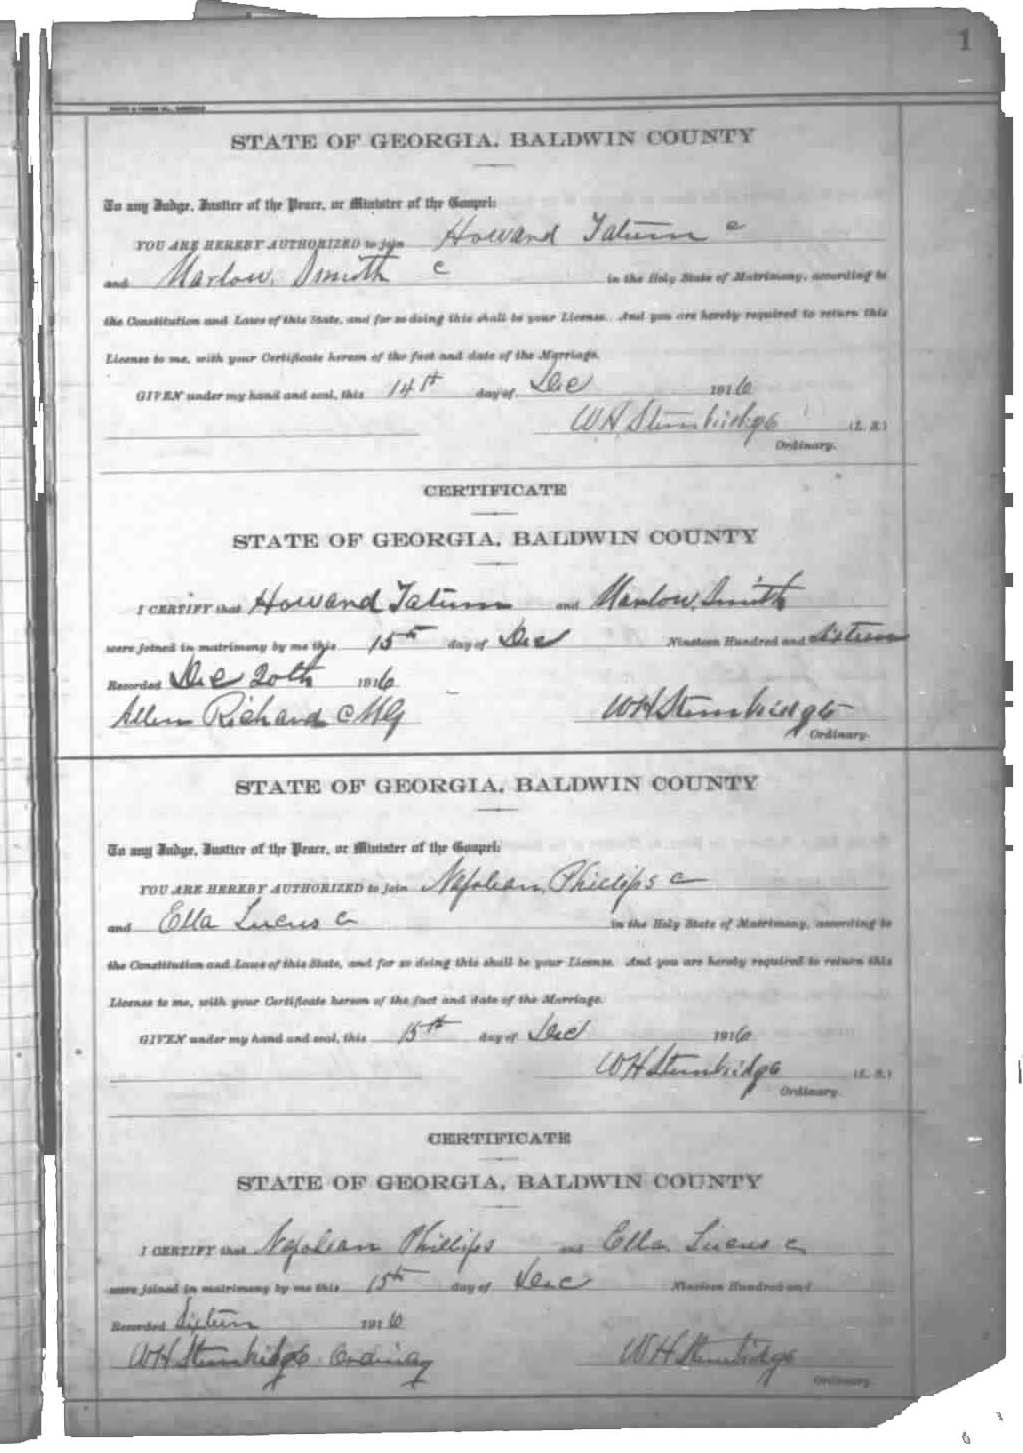 1
STATE OF GEORGIA, BALDWIN COUNTY
To any Judge, Justice of the Peace, or Minister of the Gospel:
YOU ARE HEREBY AUTHORIZED to join Howard Tatum c
and Marlow Smith c in the Holy State of Matrimony, according to
the Constitution and Laws of this State, and for so doing this shall be your License. And you are hereby required to return this
License to me, with your Certificate hereon of the fact and date of the Marriage.
GIVEN under my hand and seal, this 14th day of Dec 1916
W H Stembridge (L. S.)
Ordinary.
CERTIFICATE
STATE OF GEORGIA, BALDWIN COUNTY
I CERTIFY that Howard Tatum and Marlow Smith
were joined in matrimony by me this 15th day of Dec Nineteen Hundred and Sixteen
Recorded Dec 20th 1916
Allen Richard c MG W H Stembridge
Ordinary.
STATE OF GEORGIA, BALDWIN COUNTY
To any Judge, Justice of the Peace, or Minister of the Gospel:
YOU ARE HEREBY AUTHORIZED to join Napolean Phillips c
and Ella Lucus c in the Holy State of Matrimony, according to
the Constitution and Laws of this State, and for so doing this shall be your License. And you are hereby required to return this
License to me, with your Certificate hereon of the fact and date of the Marriage.
GIVEN under my hand and seal, this 15th day of Dec 1916
W H Stembridge (L. S.)
Ordinary.
CERTIFICATE
STATE OF GEORGIA, BALDWIN COUNTY
I CERTIFY that Napolean Phillips and Ella Lucus c
were joined in matrimony by me this 15th day of Dec Nineteen Hundred and
Recorded Sixteen 1916
W H Stembridge Ordinary W H Stembridge
Ordinary.